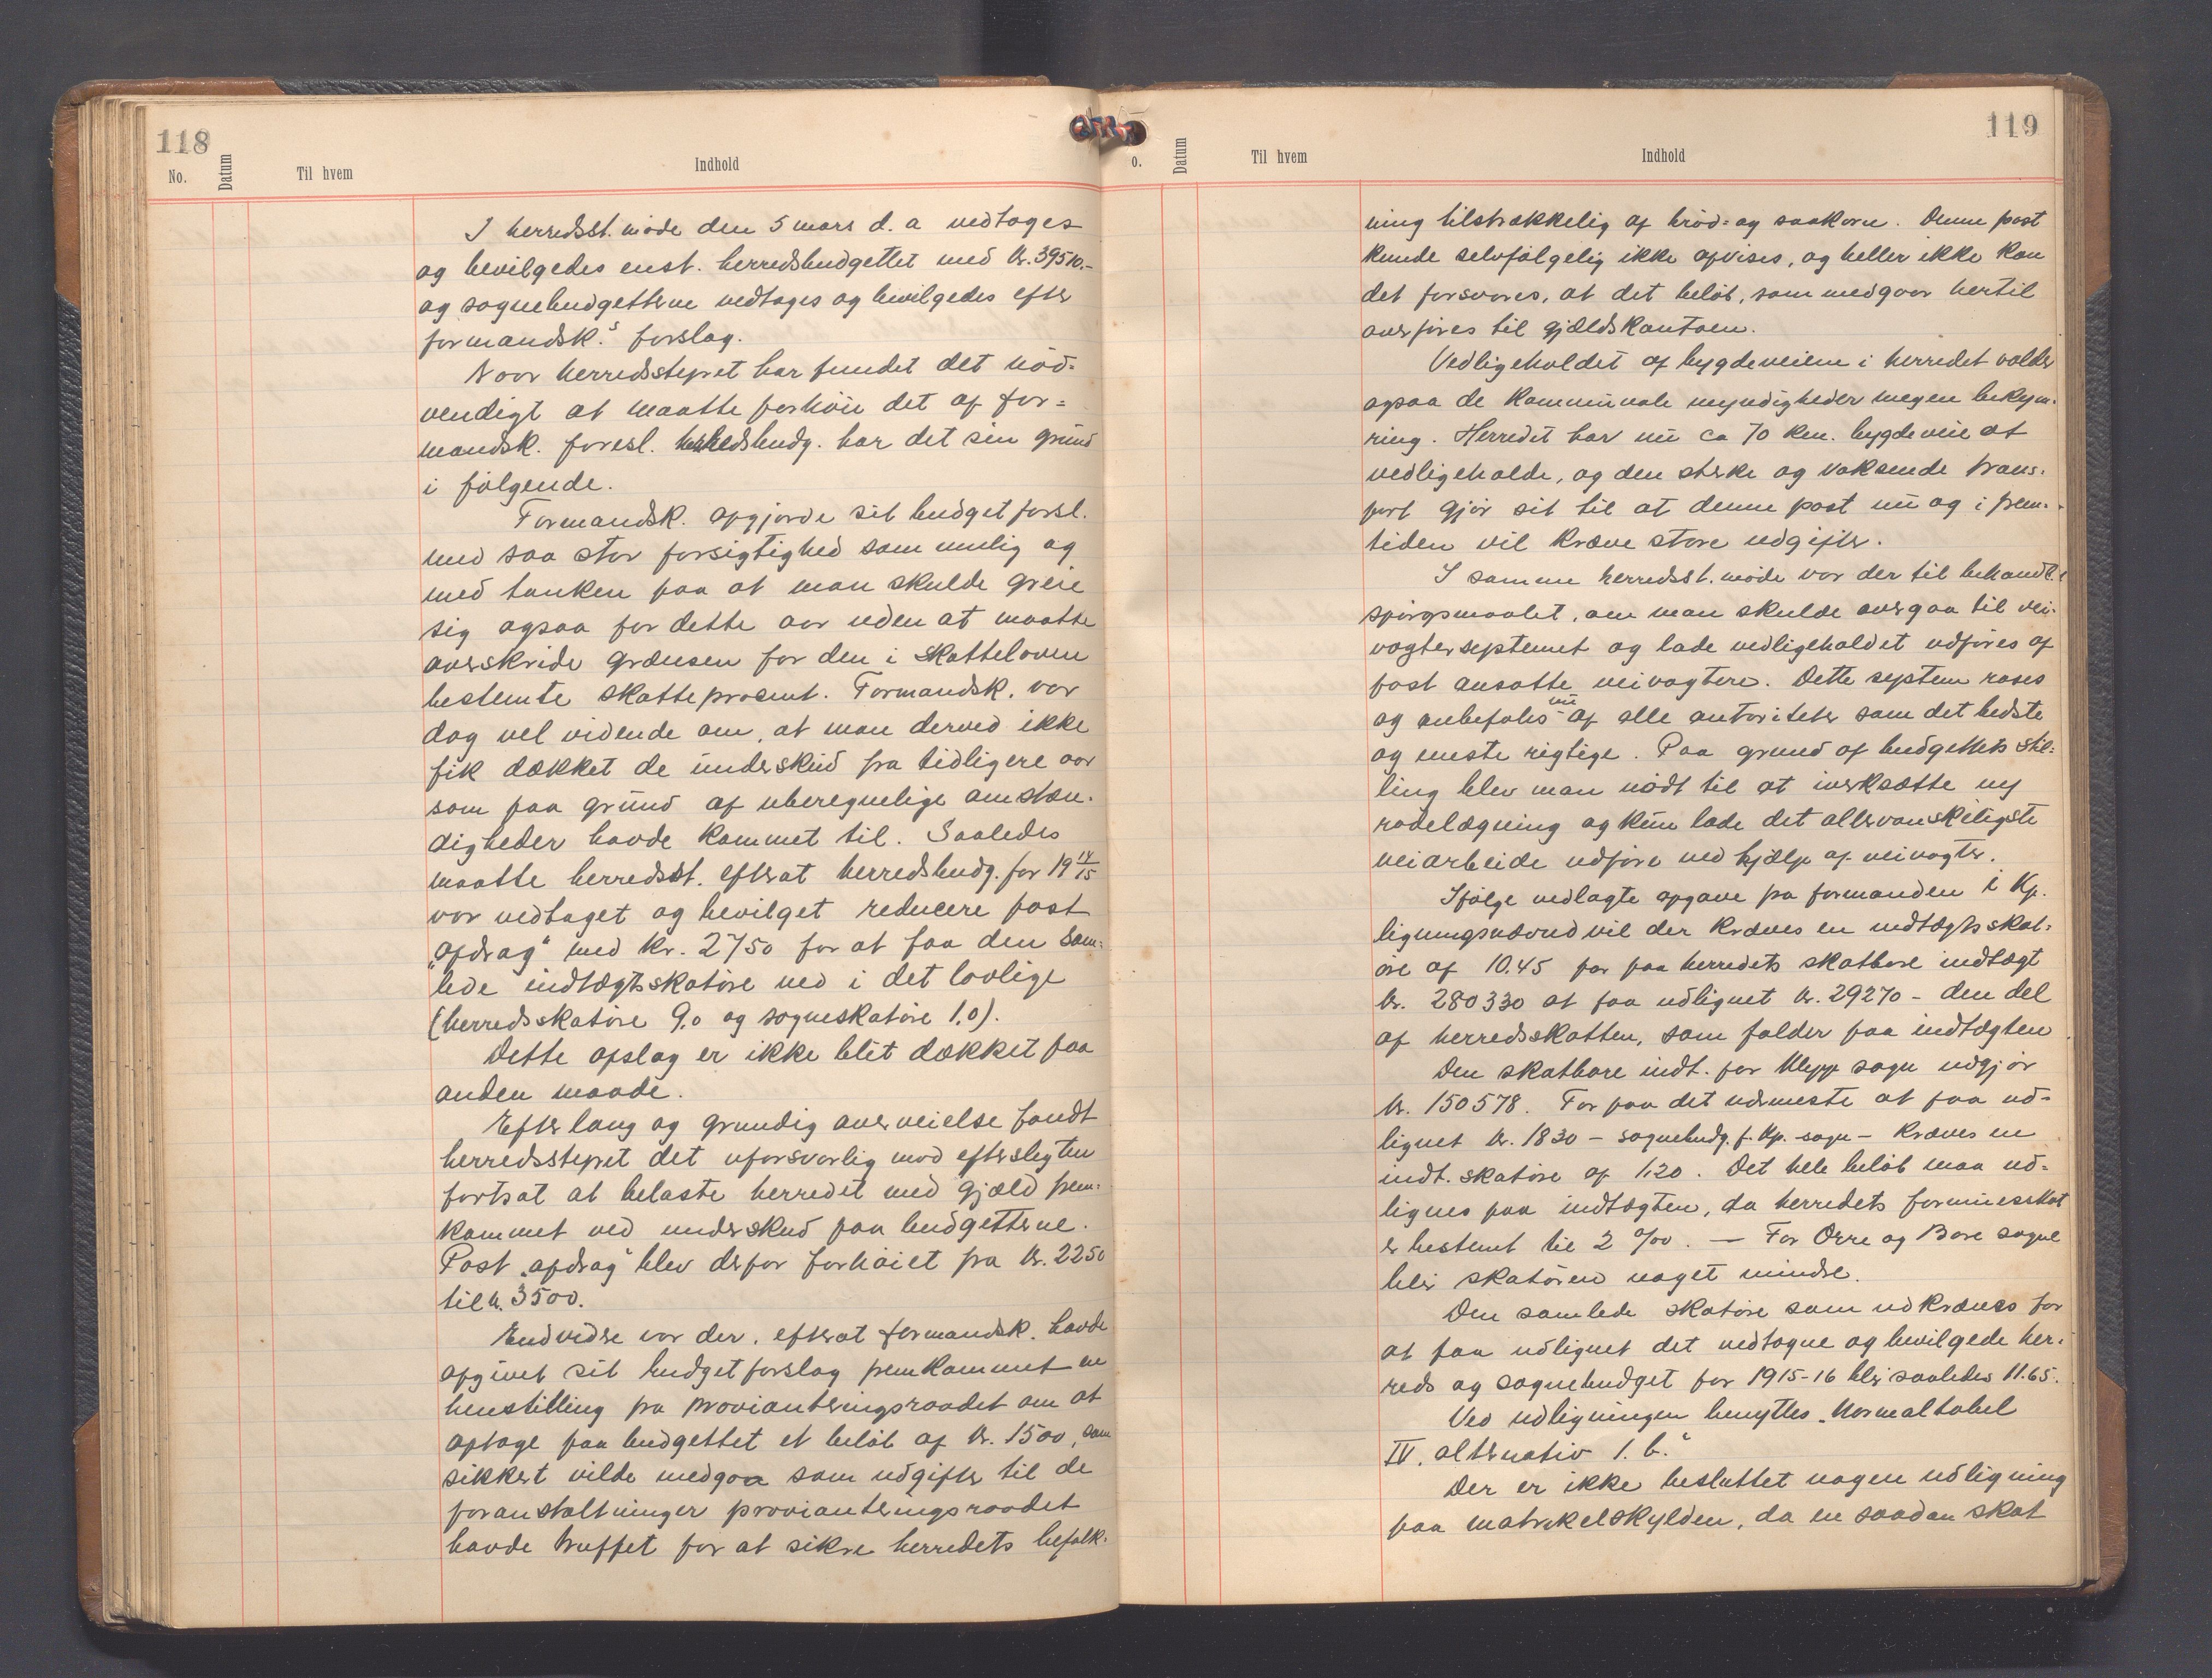 118
No.
Datum
Til hvem
Indhold
I herredsst. møde den 5 mars d. a vedtoges
og bevilgedes enst. herredsbudgettet med kr. 39510.-
og sognebudgetterne vedtoges og bevilgedes efter
formandsk.s forslag.
Naar herredsstyret har fundet det nød=
vendigt at maatte forhøie det af for=
mandsk. foresl. herredsbudg. har det sin grund
i følgende.
Formandsk. opgjorde sit budgetforsl.
med saa stor forsigtighed som mulig og
med tanken paa at man skulde greie
sig ogsaa for dette aar uden at maatte
overskride grænsen for den i skatteloven
bestemte skatteprosent. Formandsk. var
dog vel vidende om, at man derved ikke
fik dækket de underskud fra tidligere aar
som paa grund af uberegnelige omstæn-
digheder havde kommet til. Saaledes
maatte herredsst. efterat herredsbudg. for 19 14/15
var vedtaget og bevilget reducere post
„afdrag" med kr. 2750 for at faa den sam=
lede indtægtsskatøre ned i det lovlige
(herredsskatøre 9.0 og sogneskatøre 1.0).
Dette afslag er ikke blit dækket paa
anden maade.
Efter lang og grundig overveielse fandt
herredsstyret det uforsvarlig mod efterslegten
fortsat at belaste herredet med gjæld frem-
kommet ved underskud paa budgetterne.
Post „afdrag" blev derfor forhøiet fra kr. 2250
til k. 3500.
Endvidre var der, efterat formandsk. havde
afgivet sit budgetforslag fremkommet en
henstilling fra provianteringsraadet om at
optage paa budgettet et beløb af kr. 1500, som
sikkert vilde medgaa som udgifter til de
foranstaltninger provianteringsraadet
havde truffet for at sikre herredets befolk-
119
o.
Datum
Til hvem
Indhold
ning tilstrækkelig af brød= og saakorn. Denne post
kunde selvfølgelig ikke afvises, og heller ikke kan
det forsvares, at det beløb, som medgaar hertil
overføres til gjældskontoen.
Vedligeholdet af bygdeveiene i herredet volder
ogsaa de kommunale myndigheder megen bekym-
ring. Herredet har nu ca 70 km. bygdeveie at
vedligeholde, og den sterke og voksende trans-
port gjør sit til at denne post nu og i frem-
tiden vil kræve store udgifter.
I samme herredsst. møde var der til behandl.
spørgsmaalet, om man skulde overgaa til vei-
vogtersystemet og lade vedligeholdet udføres af
fast ansatte veivogtere. Dette system roses
og anbefales nu af alle autoriteter som det bedste
og mest rigtige. Paa grund af budgettets stil=
ling blev man nødt til at iverksætte ny
rodelægning og kun lade det allervanskeligste
veiarbeide udføre ved hjælp af veivogter.
Ifølge vedlagte opgave fra formanden i Kp.
ligningsnævnd vil der kræves en indtægtsskat=
øre af 10.45 for paa herredets skatbare indtægt
kr. 280330 at faa udlignet kr. 29270 - den del
af herredsskatten, som falder paa indtægten.
Den skatbare indt. for Klepp sogn udgjør
kr. 150578. For paa det nærmeste at faa ud-
lignet kr. 1830 - sognebudg. f. Kp. sogn - kræves en
indt. skatøre af 1.20. Det hele beløb maa ud=
lignes paa indtægten, da herredets formuesskat
er bestemt til 2 o/oo. — For Orre og Bore sogne
blir skatøren noget mindre.
Den samlede skatøre som udkræves for
at faa udlignet det vedtagne og bevilgede her-
reds og sognebudget for 1915-16 blir saaledes 11.65.
Ved udligningen benyttes „Normaltabel
IV. alternativ 1. b."
Der er ikke besluttet nogen udligning
paa matrikelskylden, da en saadan skat